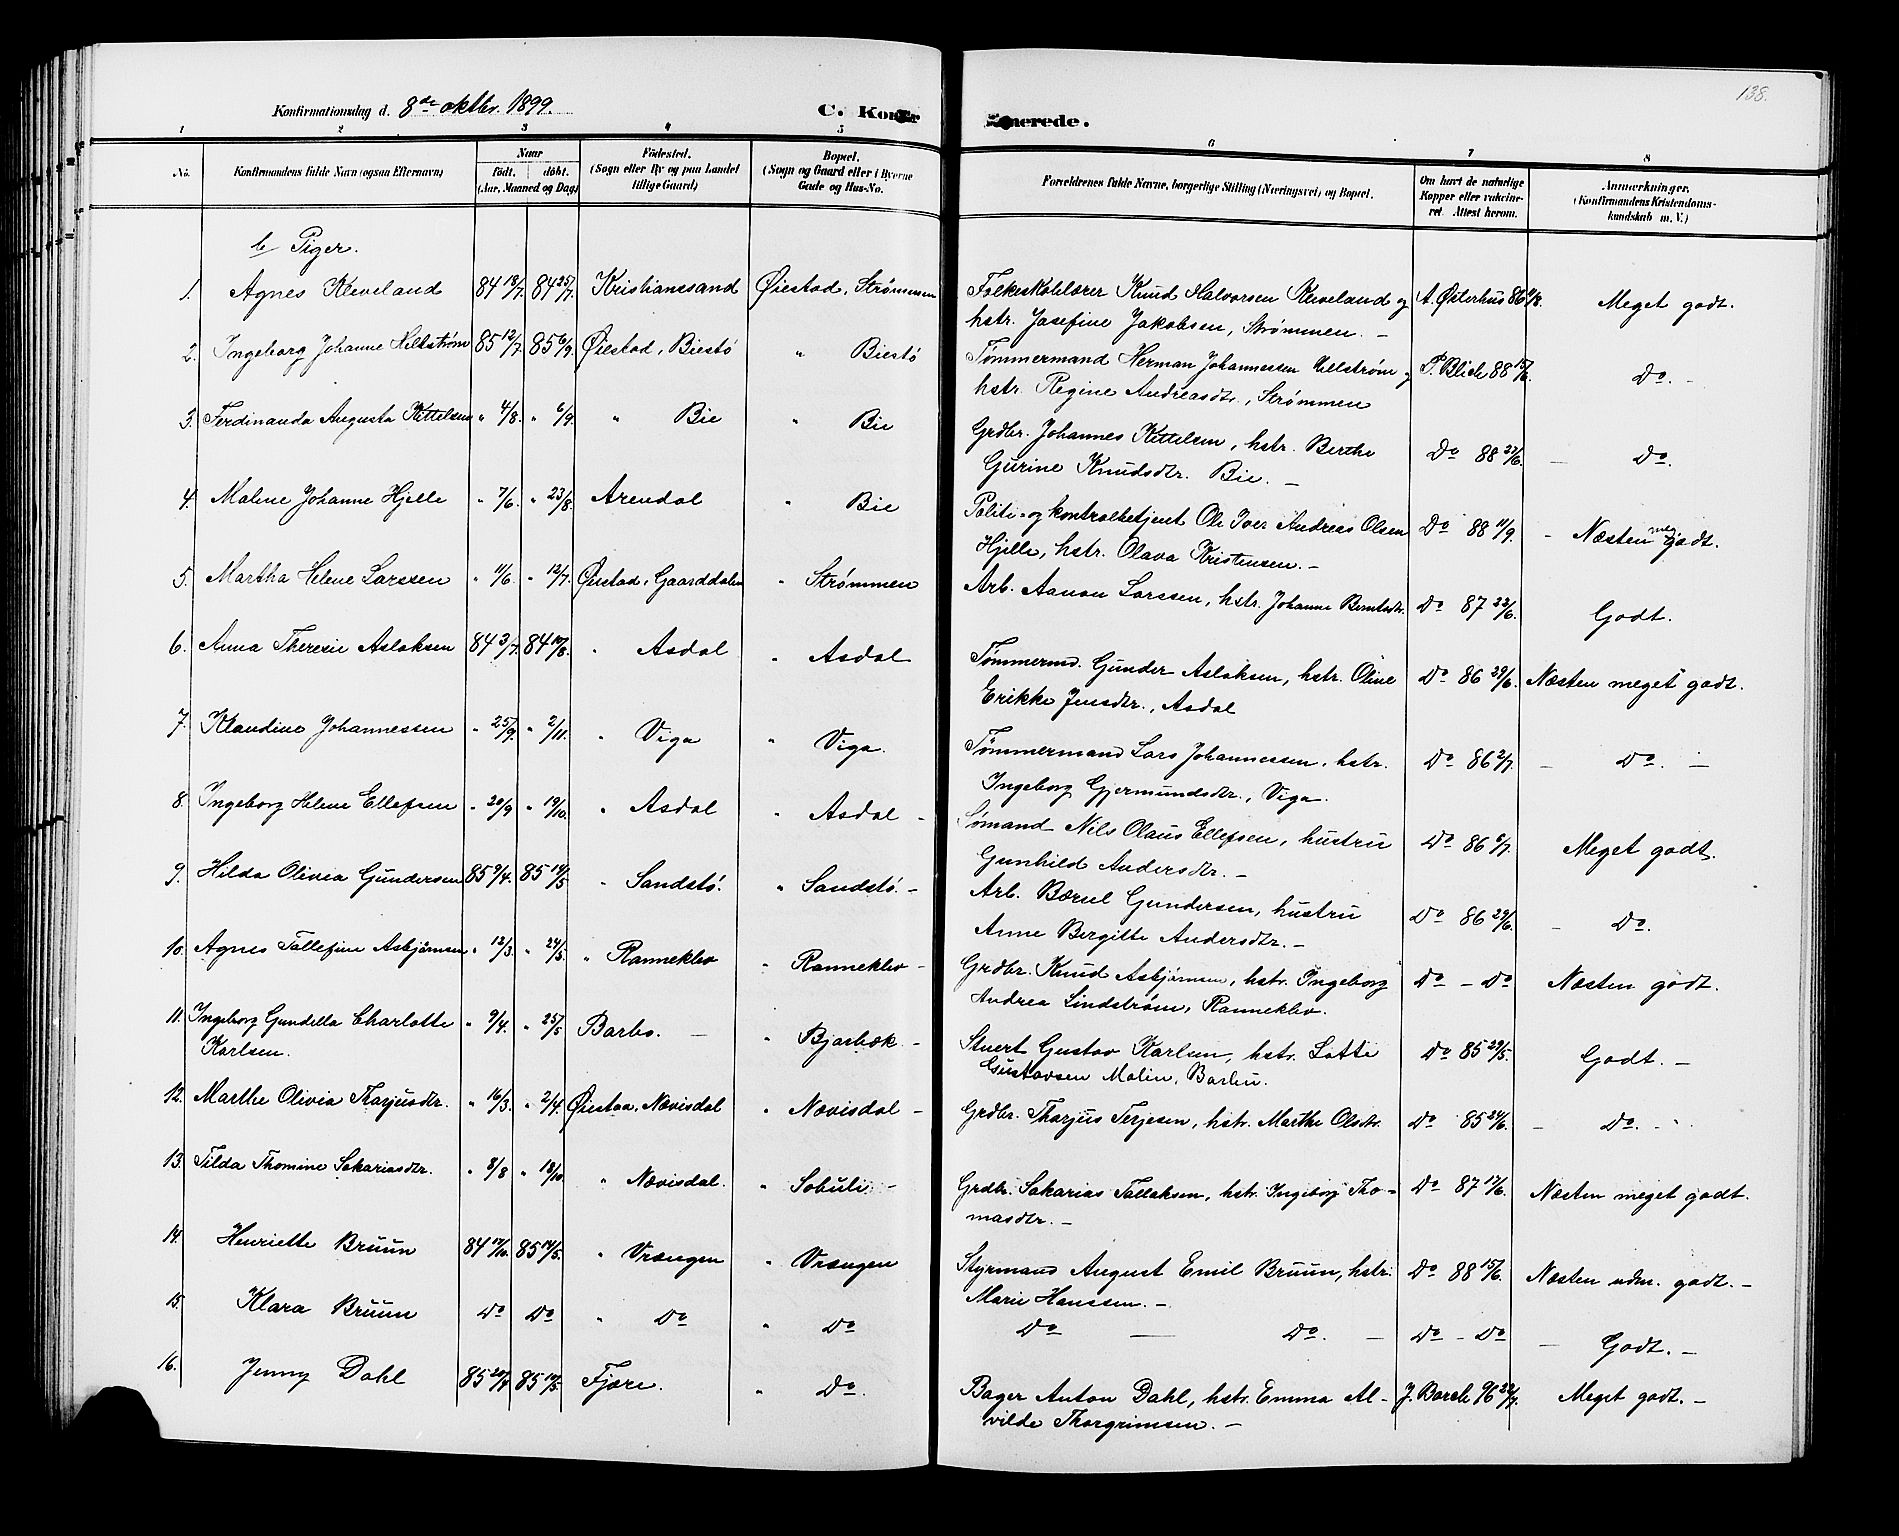 138.
Konfirmationsdag d. 8de oktbr. 1899.
C. Konfirmerede.
1 2 3 4 5 6 7 8
No. Konfirmandens fulde Navn (ogsaa Efternavn) Naar født. døbt. (Aar, Maaned og Dag) Fødested. (Sogn eller By og paa Landet tillige Gaard) Bopæl. (Sogn og Gaard eller i Byerne Gade og Hus-No. Forældrenes fulde Navne, borgerlige Stilling (Næringsvei) og Bopæl. Om havt de naturlige Kopper eller vakcineret. Attest herom. Anmærkninger. (Konfirmandens Kristendomskundskab m. V.)
b Piger.
1. Agnes Kleveland 84 18/7. 84 25/7. Kristianssand Øiestad, Strømmen Folkeskolelærer Knud Halvorsen Kleveland og A. Østerhus 86 Meget godt.
hstr. Josefine Jakobsen, Strømmen. –
2. Ingeborg Johanne Hellstrøm 85 12/7. 85 6/9. Øiestad, Biestø " Biestø Tømmermand Herman Johannessen Hellstrøm og P. Blich 88 15/6. Do. –
hstr. Regine Andreasdtr., Strømmen
3. Ferdinanda Augusta Kittelsen " 4/8. " 6/9. " Bie " Bie Grdbr. Johannes Kittelsen, hstr. Berthe Do 88 27/6. – Do.
Gurine Knudsdtr. Bie. –
4. Malene Johanne Hjelle " 7/6. " 23/8. Arendal " Bie Politi- og kontrolbetjent Ole Iver Andreas Olsen Do 88 11/9. - Næsten meg godt.
Hjelle, hstr. Olava Kristensen. –
5. Martha Helene Larssen " 11/6. " 12/7. Øiestad, Gaarddalen " Strømmen Arb. Aanon Larssen, hstr. Johanne Berntsdtr. Do 87 22/6. Godt.
6. Anna Theresie Aslaksen 84 3/7. 84 10/8. " Asdal " Asdal Tømmermd. Gunder Aslaksen, hstr. Oline Do 86 29/6. Næsten meget godt.
Erikke Jensdtr., Asdal
7. Klaudine Johannessen " 25/9. " 2/11. " Viga " Viga. Tømmermand Lars Johannessen, hstr. Do 86 2/7. – Do. –
Ingeborg Gjermundsdtr., Viga.
8. Ingeborg Helene Ellefsen " 20/9 " 19/10. " Asdal " Asdal – Sømand Nils Olaus Ellefsen, hustru Do 86 6/7. Meget godt.
Gunhild Andersdtr. –
9. Hilda Olivia Gundersen 85 9/4. 85 14/5 " Sandstø. " Sandstø. – Arb. Børul Gundersen, hustru Do 86 29/6. – Do.
Anne Bergitte Andersdtr. –
10. Agnes Tallefine Asbjørnsen " 12/3. " 24/5. " Ranneklev " Ranneklev – Grdbr. Knud Asbjørnsen, hstr. Ingeborg Do – Do Næsten godt.
Andrea Lindstrøm, Ranneklev.
11. Ingeborg Gundella Charlotte " 9/4. " 25/5 Barbo. – " Bjorbæk – Stuert Gustav Karlsen, hstr. Lotte Do 85 29/5. Godt. –
Karlsen. Gustavsen Malin, Barbu.
12. Marthe Olivia Tharjusdtr. " 16/3. " 2/4. Øiestaa, Nævisdal " Nævisdal – Grdbr. Tharjus Terjesen, hstr. Marthe Olsdtr. Do 85 24/6. – Do. – "
13. Tilda Thomine Sakariasdtr. " 8/8 " 18/10. " Nævisdal. " Sobuli – Grdbr. Sakarias Tallaksen, hstr. Ingeborg Tho- Do 87 17/6. Næsten meget godt.
masdtr. –
14. Henriette Bruun 84 17/10. 85 14/5. " Vrængen " Vrængen Styrmand August Emil Bruun, hstr. Do 88 15/6. Næsten udm. godt. –
Marie Hanssen. –
15. Klara Bruun Do Do " Do " Do Do — Do. – Do – Do – Godt. –
16. Jenny Dahl 85 20/4 85 17/5. Fjære. " Do. Bager Anton Dahl, hstr. Emma Al- J. Barch 96 22/7. Meget godt. –
vilde Thorgrimsen. –